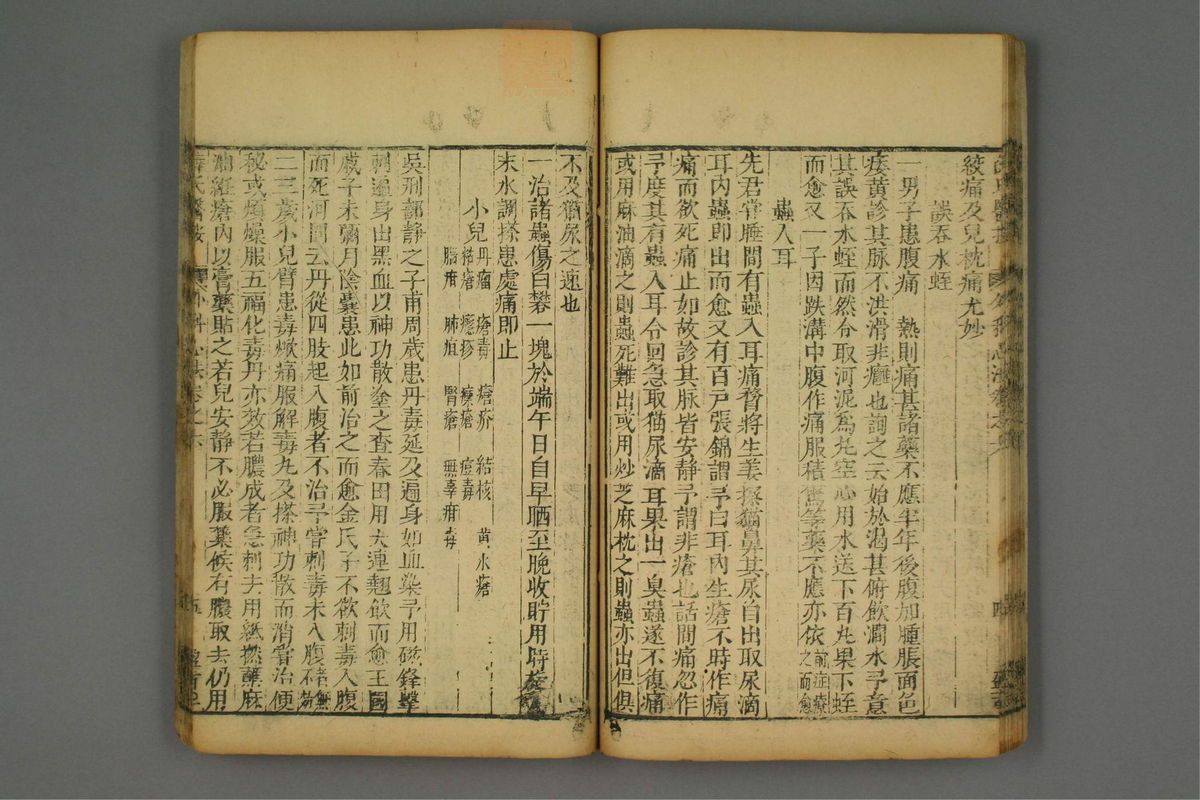 絞痛及兒枕痛尤妙
誤吞水蛭
一男子患腹痛熱則痛甚諸藥不應半年後腹加腫脹面色
痿黃診其脉不洪滑非癰也詢之云始於渴甚俯飲澗水予意
其誤吞水蛭而然令取河泥爲丸空心用水送下百丸果下蛭
而愈又一子因跌溝中腹作痛服積等藥不應亦依前症療之而愈
蟲入耳
先君嘗睡間有蟲入耳痛瞀將生姜擦猫鼻其尿自出取尿滴
耳內蟲即出而愈又有百戶張錦謂予曰耳內生瘡不時作痛
痛而欲死痛止如故診其脉皆安靜予謂非瘡也話間痛忽作
予度其有蟲入耳令回急取猫尿滴耳果出一臭蟲遂不復痛
或用麻油滴之則蟲死難出或用炒芝麻枕之則蟲亦出但俱
不及猫尿之速也
一治諸蟲傷白礬一塊於端午日自早晒至晚收貯用時
末水調搽患處痛即止
小兒丹瘤 瘡毒 瘡疥 結核 黃水瘡
痘瘡 癮疹 瘰瘡 痘毒
腦疳 肺疽 腎瘡 無辜疳毒
吳刑部靜之子甫周歲患丹毒延及遍身如血染予用磁鋒擊
刺遍身出黑血以神功散塗之查春田用大連翹飲而愈王國
戚子未彌月陰囊患此如前治之而愈金氏子不欲刺毒入腹
而死河間云丹從四肢起入腹者不治予嘗刺毒未入腹者無
二三歲小兒臂患毒焮痛服解毒丸及搽神功散而消嘗治便
秘或煩燥服五福化毒丹亦效若膿成者急刺去用紙撚蘸麻
油絍瘡內以膏藥貼之若兒安靜不必服藥候有膿取去仍用